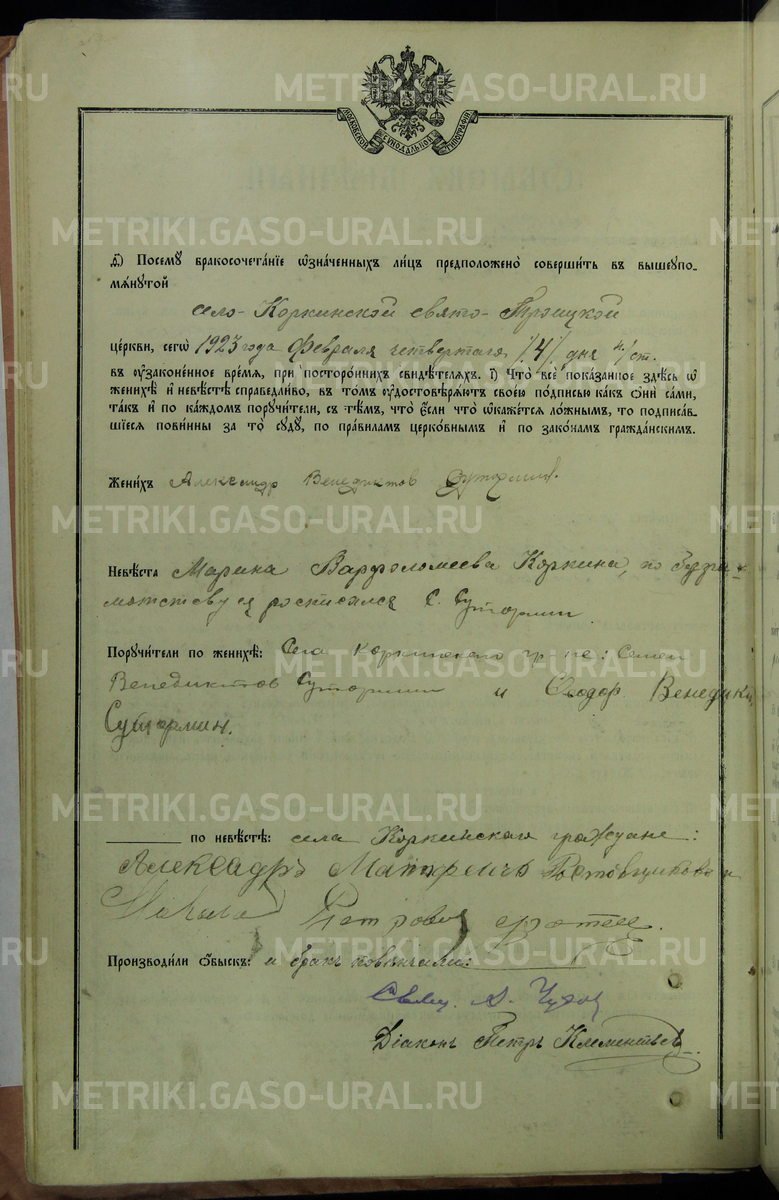 METRIKI.GASO-URAL.RU
МОСКОВСКОЙ СѴНОДАЛЬНОЙ ТИПОГРАФІИ
ѕ҃) Посемꙋ бракосочета́нїе ѡ҆зна́ченныхъ ли́цъ предположено̀ соверши́ть въ вышеꙋпо-
мѧ́нꙋтой
село-Коркинской свято-Троицкой
це́ркви, сегѡ̀ 1923 года февраля четвертаго /4/ дня н/ст.
въ ᲂу҆зако́ненное вре́мѧ, при посторо́ннихъ свидѣ́телѧхъ. з҃) Что̀ всѐ пока́занное здѣ́сь ѡ҆
женихѣ̀ и҆ невѣ́стѣ справедли́во, въ то́мъ ᲂу҆достовѣрѧ́ютъ свое́ю по́дписью ка́къ ѻ҆нѝ са́ми,
та́къ и҆ по ка́ждомъ порꙋчи́тели, съ тѣ́мъ, что̀ є҆́сли что̀ ѡ҆ка́жетсѧ ло́жнымъ, то подписа́в-
шїесѧ пови́нны за то̀ сꙋдꙋ̀, по пра́виламъ церко́внымъ и҆ по зако́намъ гражда́нскимъ.
Жени́хъ Александр Венедиктов Сутормин.
Невѣ́ста Марина Варфоломеева Коркина, по безгра-
мотству ея росписался С. Сутормин
Порꙋчи́тели по женихѣ̀: Села Коркинского гр-не: Семен
Венедиктов Сутормин и Феодор Венедик
Сутормин.
по невѣ́стѣ: села Коркинскаго граждане:
Александръ
Петрович
Производи́ли ѻ҆́быскъ: и бракъ повѣнчали:
Свящ. А.
Діаконъ Петръ Клементьев